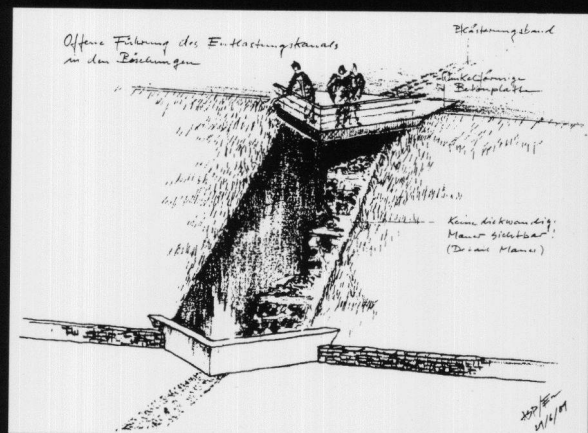 Offene Führung des Entlastungskanals
in den Böschungen
Pflästerungsband
Winkelförmige
Betonplatte
Keine dickwandige
Mauer sichtbar!
(Detail Mauer)